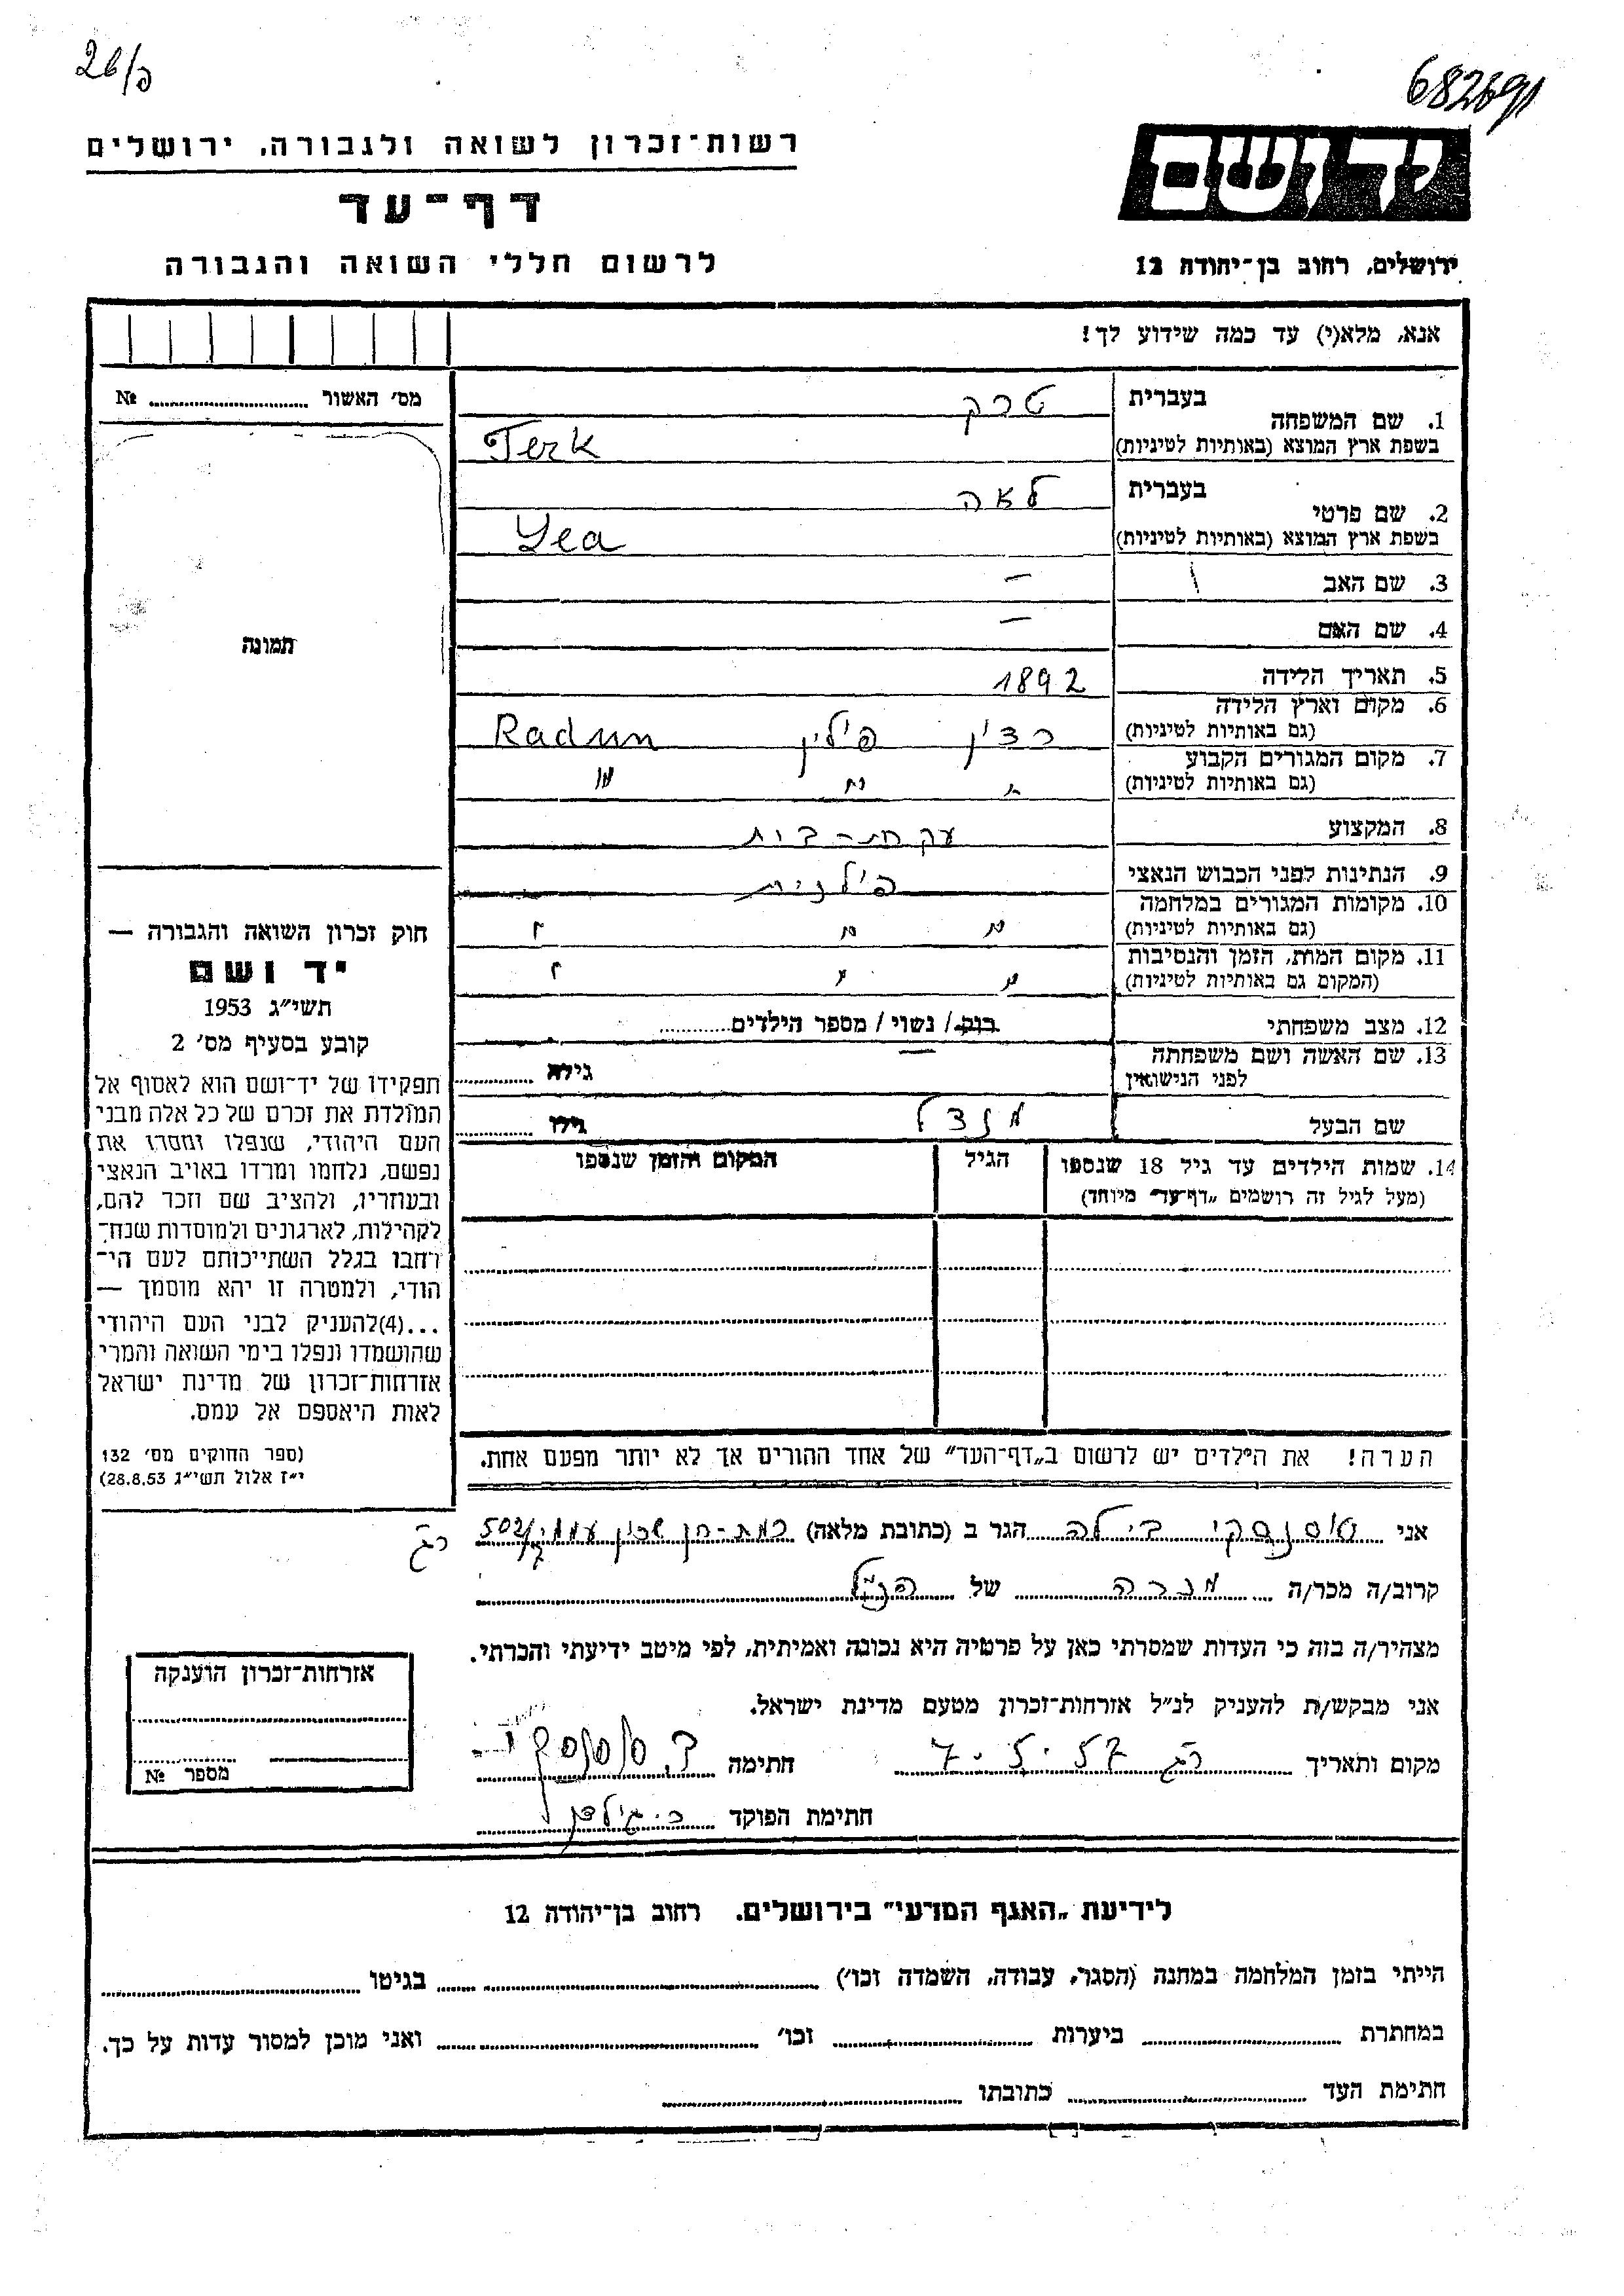 26/כ
682691
רשות־זכרון לשואה ולגבורה, ירושלים
דף־עד
לרשום חללי השואה והגבורה
יד ושם
ירושלים, רחוב בן־יהודה 12
אנא, מלא(י) עד כמה שידוע לך!
מס׳ האשור № 
תמונה
חוק זכרון השואה והגבורה —
יד ושם
תשי״ג 1953
קובע בסעיף מס׳ 2
תפקידו של יד־ושם הוא לאסוף אל
המולדת את זכרם של כל אלה מבני
העם היהודי, שנפלו ומסרו את
נפשם, נלחמו ומרדו באויב הנאצי
ובעוזריו, ולהציב שם וזכר להם,
לקהילות, לארגונים ולמוסדות שנח־
רחבו בגלל השתייכותם לעם הי־
הודי, ולמטרה זו יהא מוסמך —
...(4)להעניק לבני העם היהודי
שהושמדו ונפלו בימי השואה והמרי
אזרחות־זכרון של מדינת ישראל
לאות היאספם אל עמם.
(ספר החוקים מס׳ 132
י״ז אלול תשי״ג 28.8.53)
בעברית טרק
1. שם המשפחה
בשפת ארץ המוצא (באותיות לטיניות) Terk
בעברית לאה
2. שם פרטי
בשפת ארץ המוצא (באותיות לטיניות) Lea
3. שם האב –
4. שם האם –
5. תאריך הלידה 1892
6. מקום וארץ הלידה
(גם באותיות לטיניות) רדין פולין Radun
7. מקום המגורים הקבוע
(גם באותיות לטיניות) " " "
8. המקצוע עקרת-בית
9. הנתינות לפני הכבוש הנאצי פולנית
10. מקומות המגורים במלחמה
(גם באותיות לטיניות) " " "
11. מקום המות, הזמן והנסיבות
(המקום גם באותיות לטיניות) " " "
12. מצב משפחתי רווק/ נשוי/ מספר הילדים
13. שם האשה ושם משפחתה
לפני הנישואין – גילה
שם הבעל מנדל גילו
14. שמות הילדים עד גיל 18 שנספו הגיל המקום והזמן שנספו
(מעל לגיל זה רושמים „דף־עד״ מיוחד)
הערה! את הילדים יש לרשום ב„דף־העד״ של אחד ההורים אך לא יותר מפעם אחת.
אני בילה הגר ב (כתובת מלאה) רמת-חן שכון עממי 502/ רג
קרוב/ה מכר/ה מכרה של הנ״ל
מצהיר/ה בזה כי העדות שמסרתי כאן על פרטיה היא נכונה ואמיתית, לפי מיטב ידיעתי והכרתי.
אני מבקש/ת להעניק לנ״ל אזרחות־זכרון מטעם מדינת ישראל.
מקום ותאריך רג 7.5.57 חתימה
חתימת הפוקד
אזרחות־זכרון הוענקה
מספר №
לידיעת „האגף המדעי״ בירושלים, רחוב בן־יהודה 12
הייתי בזמן המלחמה במחנה (הסגר, עבודה, השמדה וכו׳) בגיטו
במחתרת ביערות וכו׳ ואני מוכן למסור עדות על כך.
חתימת העד כתובתו